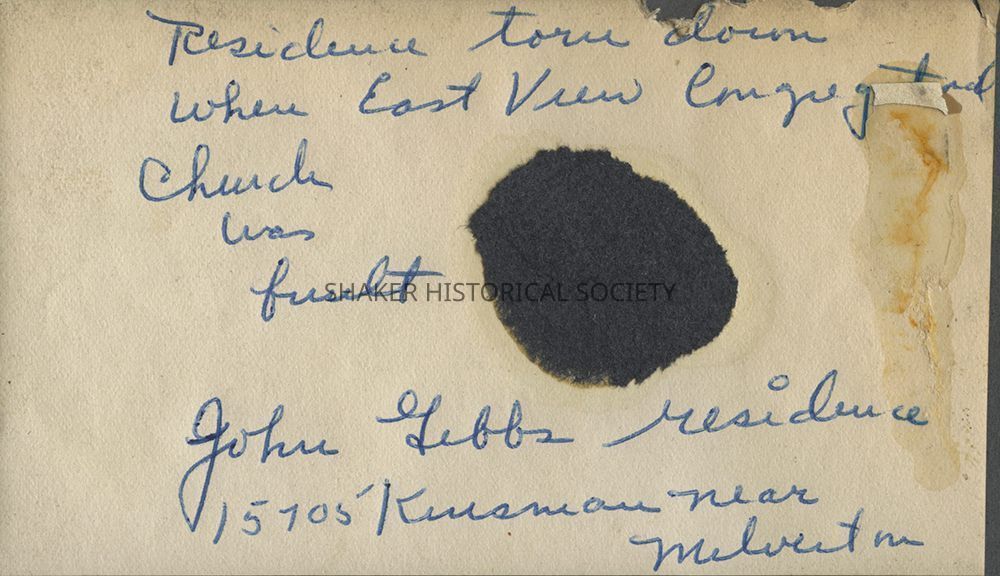 Residence torn down
when East View Congreg
Church
was
built
SHAKER HISTORICAL SOCIETY
John Gibbs residence
15705 Kinsman near
Milverton